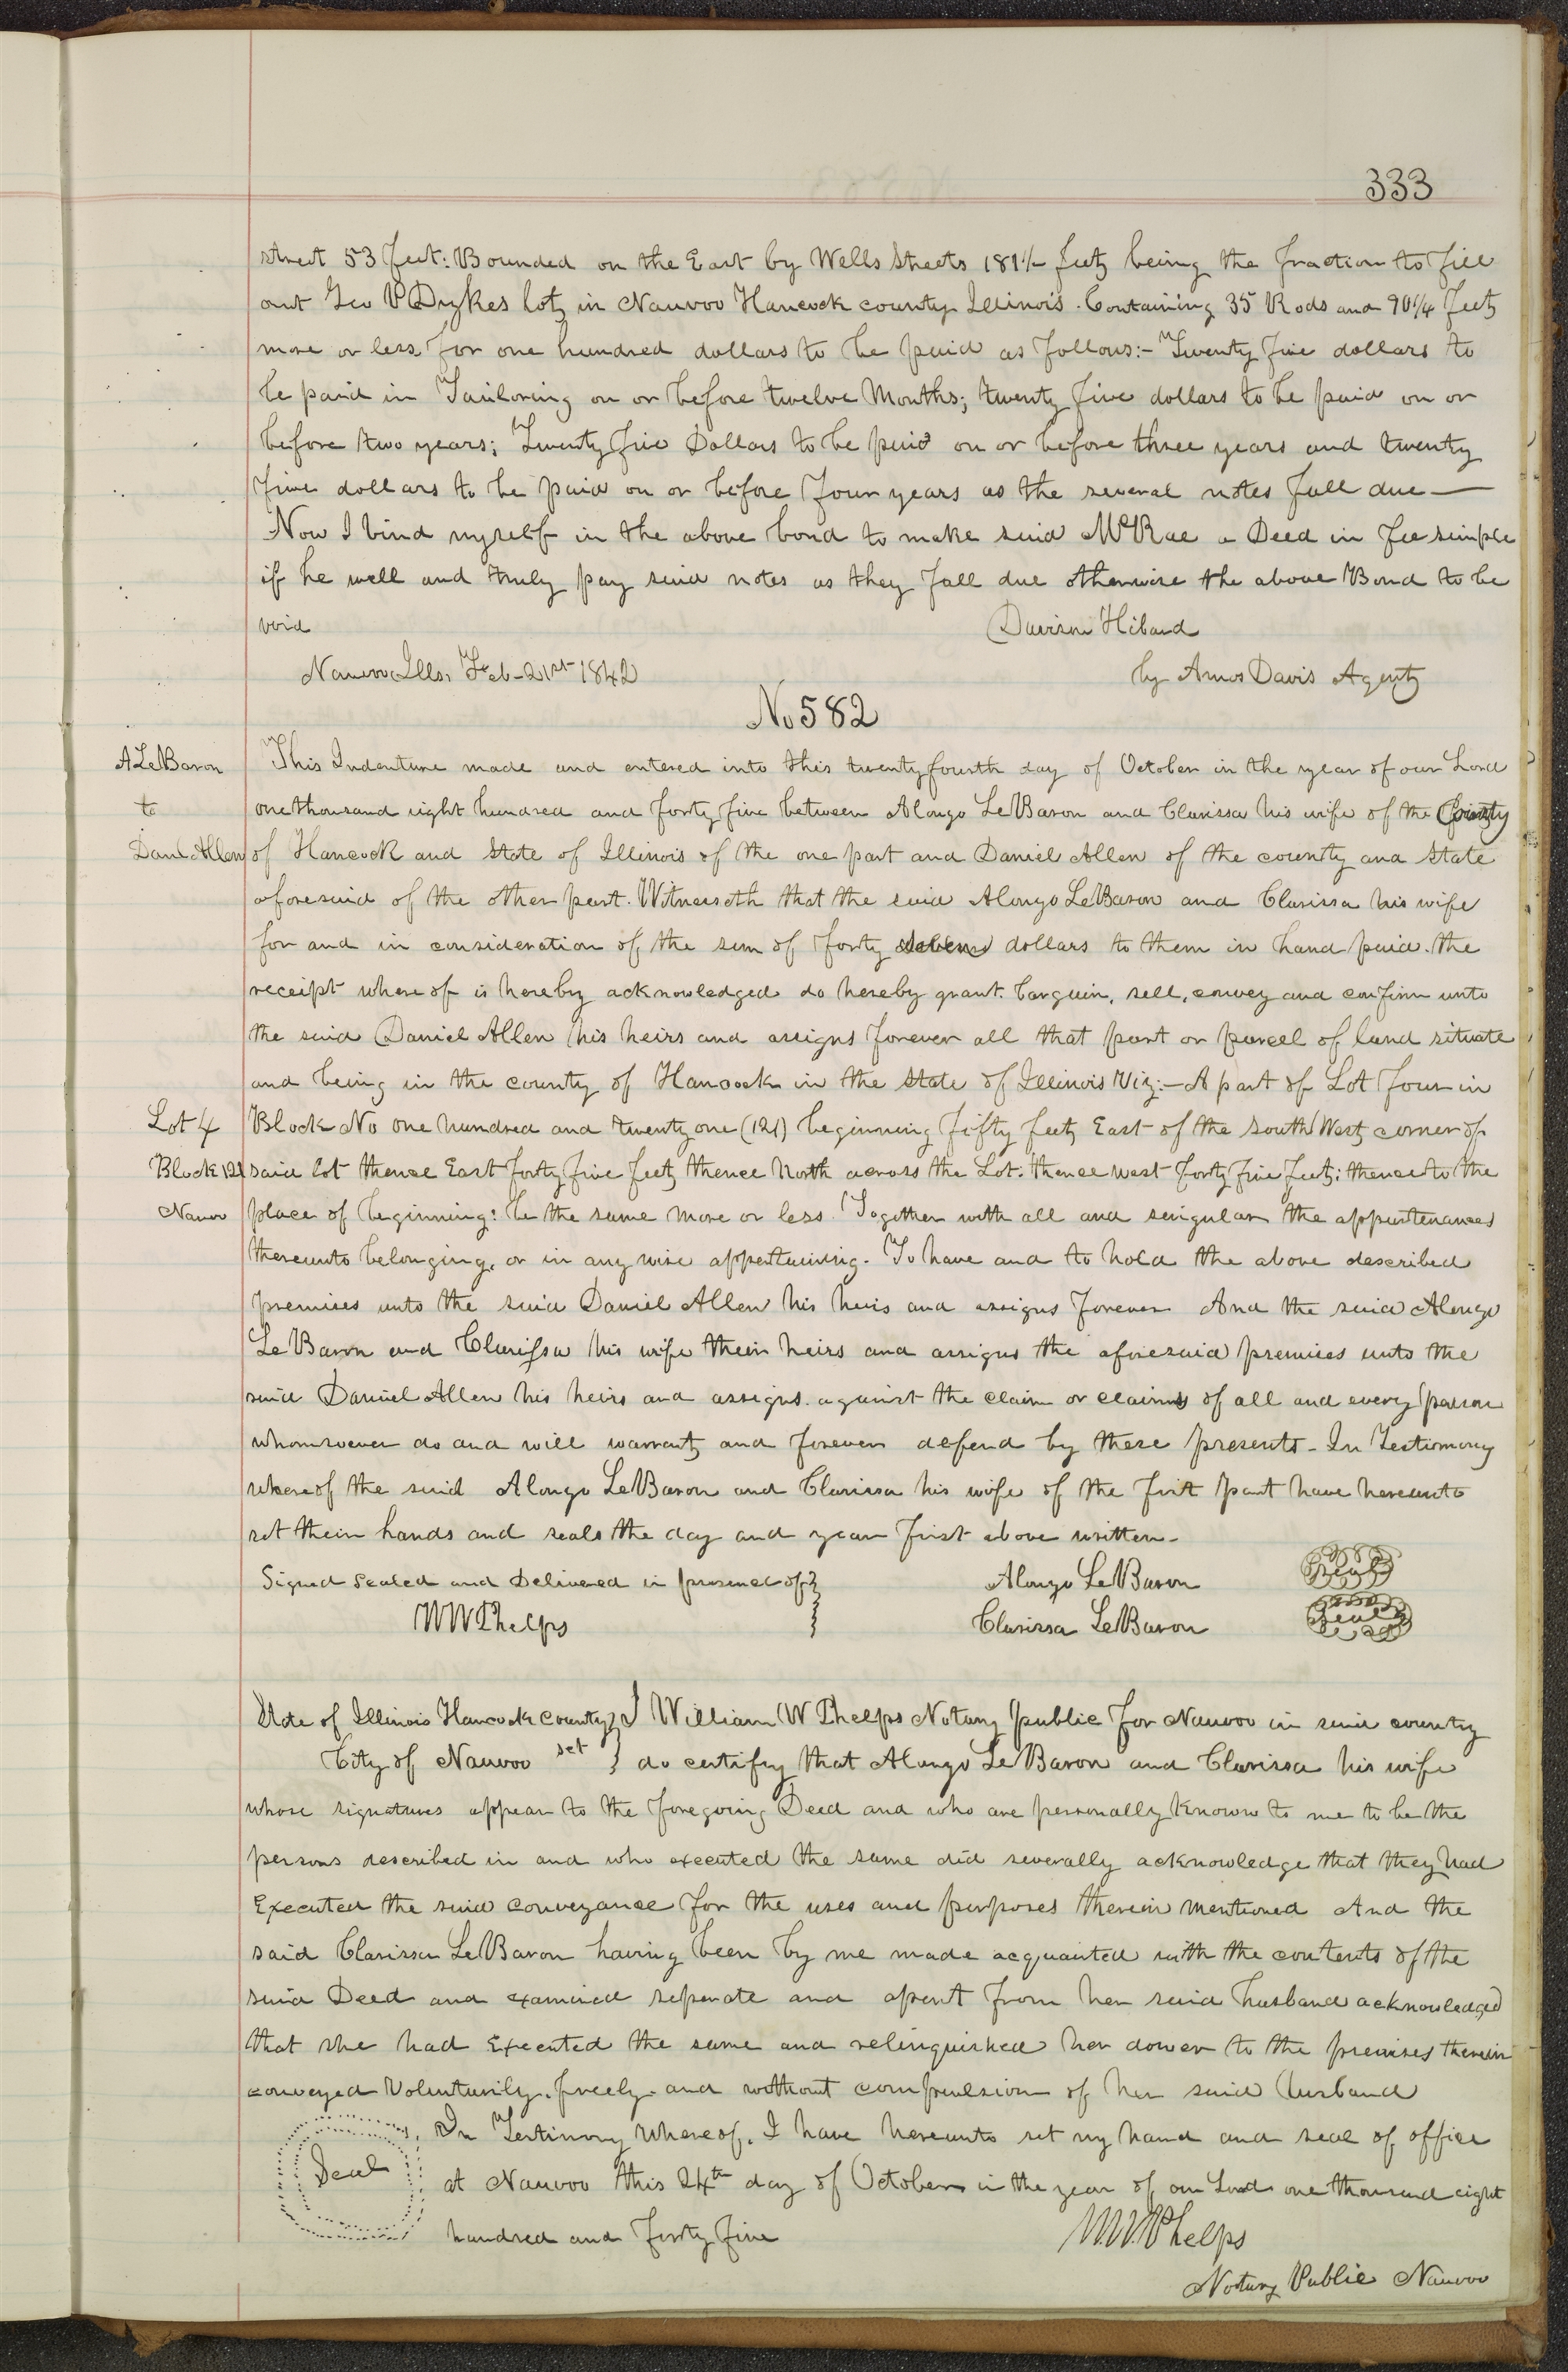 333
street 53 feet: Bounded on the East by Wells Streets 181½ feet being the fraction to fill
out Geo P Dykes lot in Nauvoo Hancock county Illinois. Containing 35 Rods and 90¼ feet
more or less, for one hundred dollars to be paid as follows:- Twenty five dollars to
be paid in Tailoring on or before twelve Months; twenty five dollars to be paid on or
before two years; Twenty five Dollars to be paid on or before three years and twenty
five dollars to be paid on or before four years as the several notes fall due—
Now I bind myself in the above bond to make said McRae a Deed in fee simple
if he well and truly pay said notes as they fall due otherwise the above Bond to be
void Davison Hibard
Nauvoo Ills, Feb-21st 1842 by Amos Davis Agent
No 582
A LeBaron
to
Danl Allen
This Indenture made and entered into this twenty fourth day of October in the year of our Lord
one thousand eight hundred and forty five between Alongo LeBaron and Clarissa his wife of the County
of Hancock and State of Illinois of the one part and Daniel Allen of the county and State
aforesaid of the other part. Witnesseth that the said Alongo LeBaron and Clarissa his wife
for and in consideration of the sum of forty seven dollars to them in hand paid. the
receipt where of is hereby acknowledged do hereby grant. bargain, sell, convey and confirm unto
the said Daniel Allen his heirs and assigns forever all that part or parcel of land situate
and being in the county of Hancock in the State of Illinois Viz:- A part of Lot four in
Lot 4
Block 121
Nauvoo
Block No one hundred and twenty one (121) beginning fifty feet East of the South West corner of
said lot thence East forty five feet thence North across the Lot. thence west forty five feet: thence to the
place of beginning: be the same more or less. Together with all and singular the appurtenances
thereunto belonging, or in any wise appertaining. To have and to hold the above described
premises unto the said Daniel Allen his heirs and assigns forever And the said Alongo
LeBaron and Clarissa his wife their heirs and assigns the aforesaid premises unto the
said Daniel Allen his heirs and assigns. against the claim or claims of all and every person
whomsoever do and will warrant and forever defend by these presents- In Testimony
whereof the said Alongo LeBaron and Clarissa his wife of the first part have hereunto
set their hands and seals the day and year first above written-
Signed Sealed and Delivered in presence of } Alongo LeBaron Seal
WW Phelps } Clarissa LeBaron Seal
State of Illinois Hancock county } I William W Phelps Notary public for Nauvoo in said county
City of Nauvoo sct } do certify that Alongo LeBaron and Clarissa his wife
whose signatures appear to the foregoing Deed and who are personally known to me to be the
persons described in and who executed the same did severally acknowledge that they had
Executed the said conveyance for the uses and purposes therein mentioned And the
said Clarissa LeBaron having been by me made acquainted with the contents of the
said Deed and examined seperate and apart from her said husband acknowledged
that she had Executed the same and relinquished her dower to the premises therein
conveyed Voluntarily. freely. and without compulsion of her said husband
Seal
In Testimony Whereof. I have hereunto set my hand and seal of office
at Nauvoo this 24th day of October in the year of our Lord one thousand eight
hundred and forty five W.W. Phelps
Notary Public Nauvoo